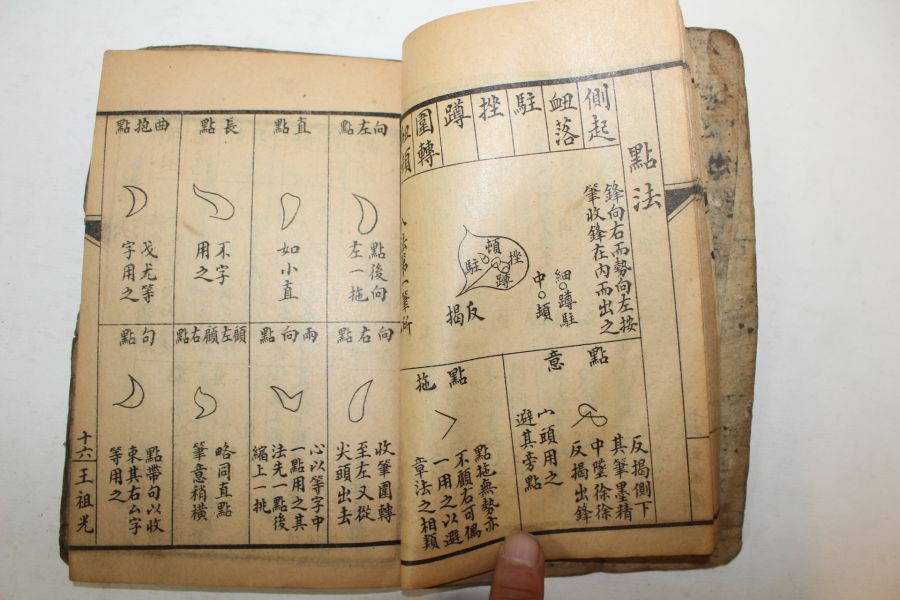 點法
側起
衄落
駐
挫
蹲
圍轉
鋒向右而勢向左按
筆收鋒在內而出之
頓
挫
駐
蹲
細○蹲駐
中○頓
反揭
點意
反揭側下
其筆墨精
中墜徐徐
反揭出鋒
山頭用之
避其旁點
點拖
點拖無勢亦
不顧右可偶
一用之以避
章法之相類
向左點
點後向
左一拖
直點
如小直
長點
不字
用之
曲抱點
戈尤等
字用之
向右點
收筆圍轉
至左又從
尖頭出去
兩向點
心以等字中
一點用之其
法先一點後
縮上一挑
顧左顧右點
略同直點
筆意稍橫
句點
點帶句以收
束其右厶字
等用之
十六
王祖光